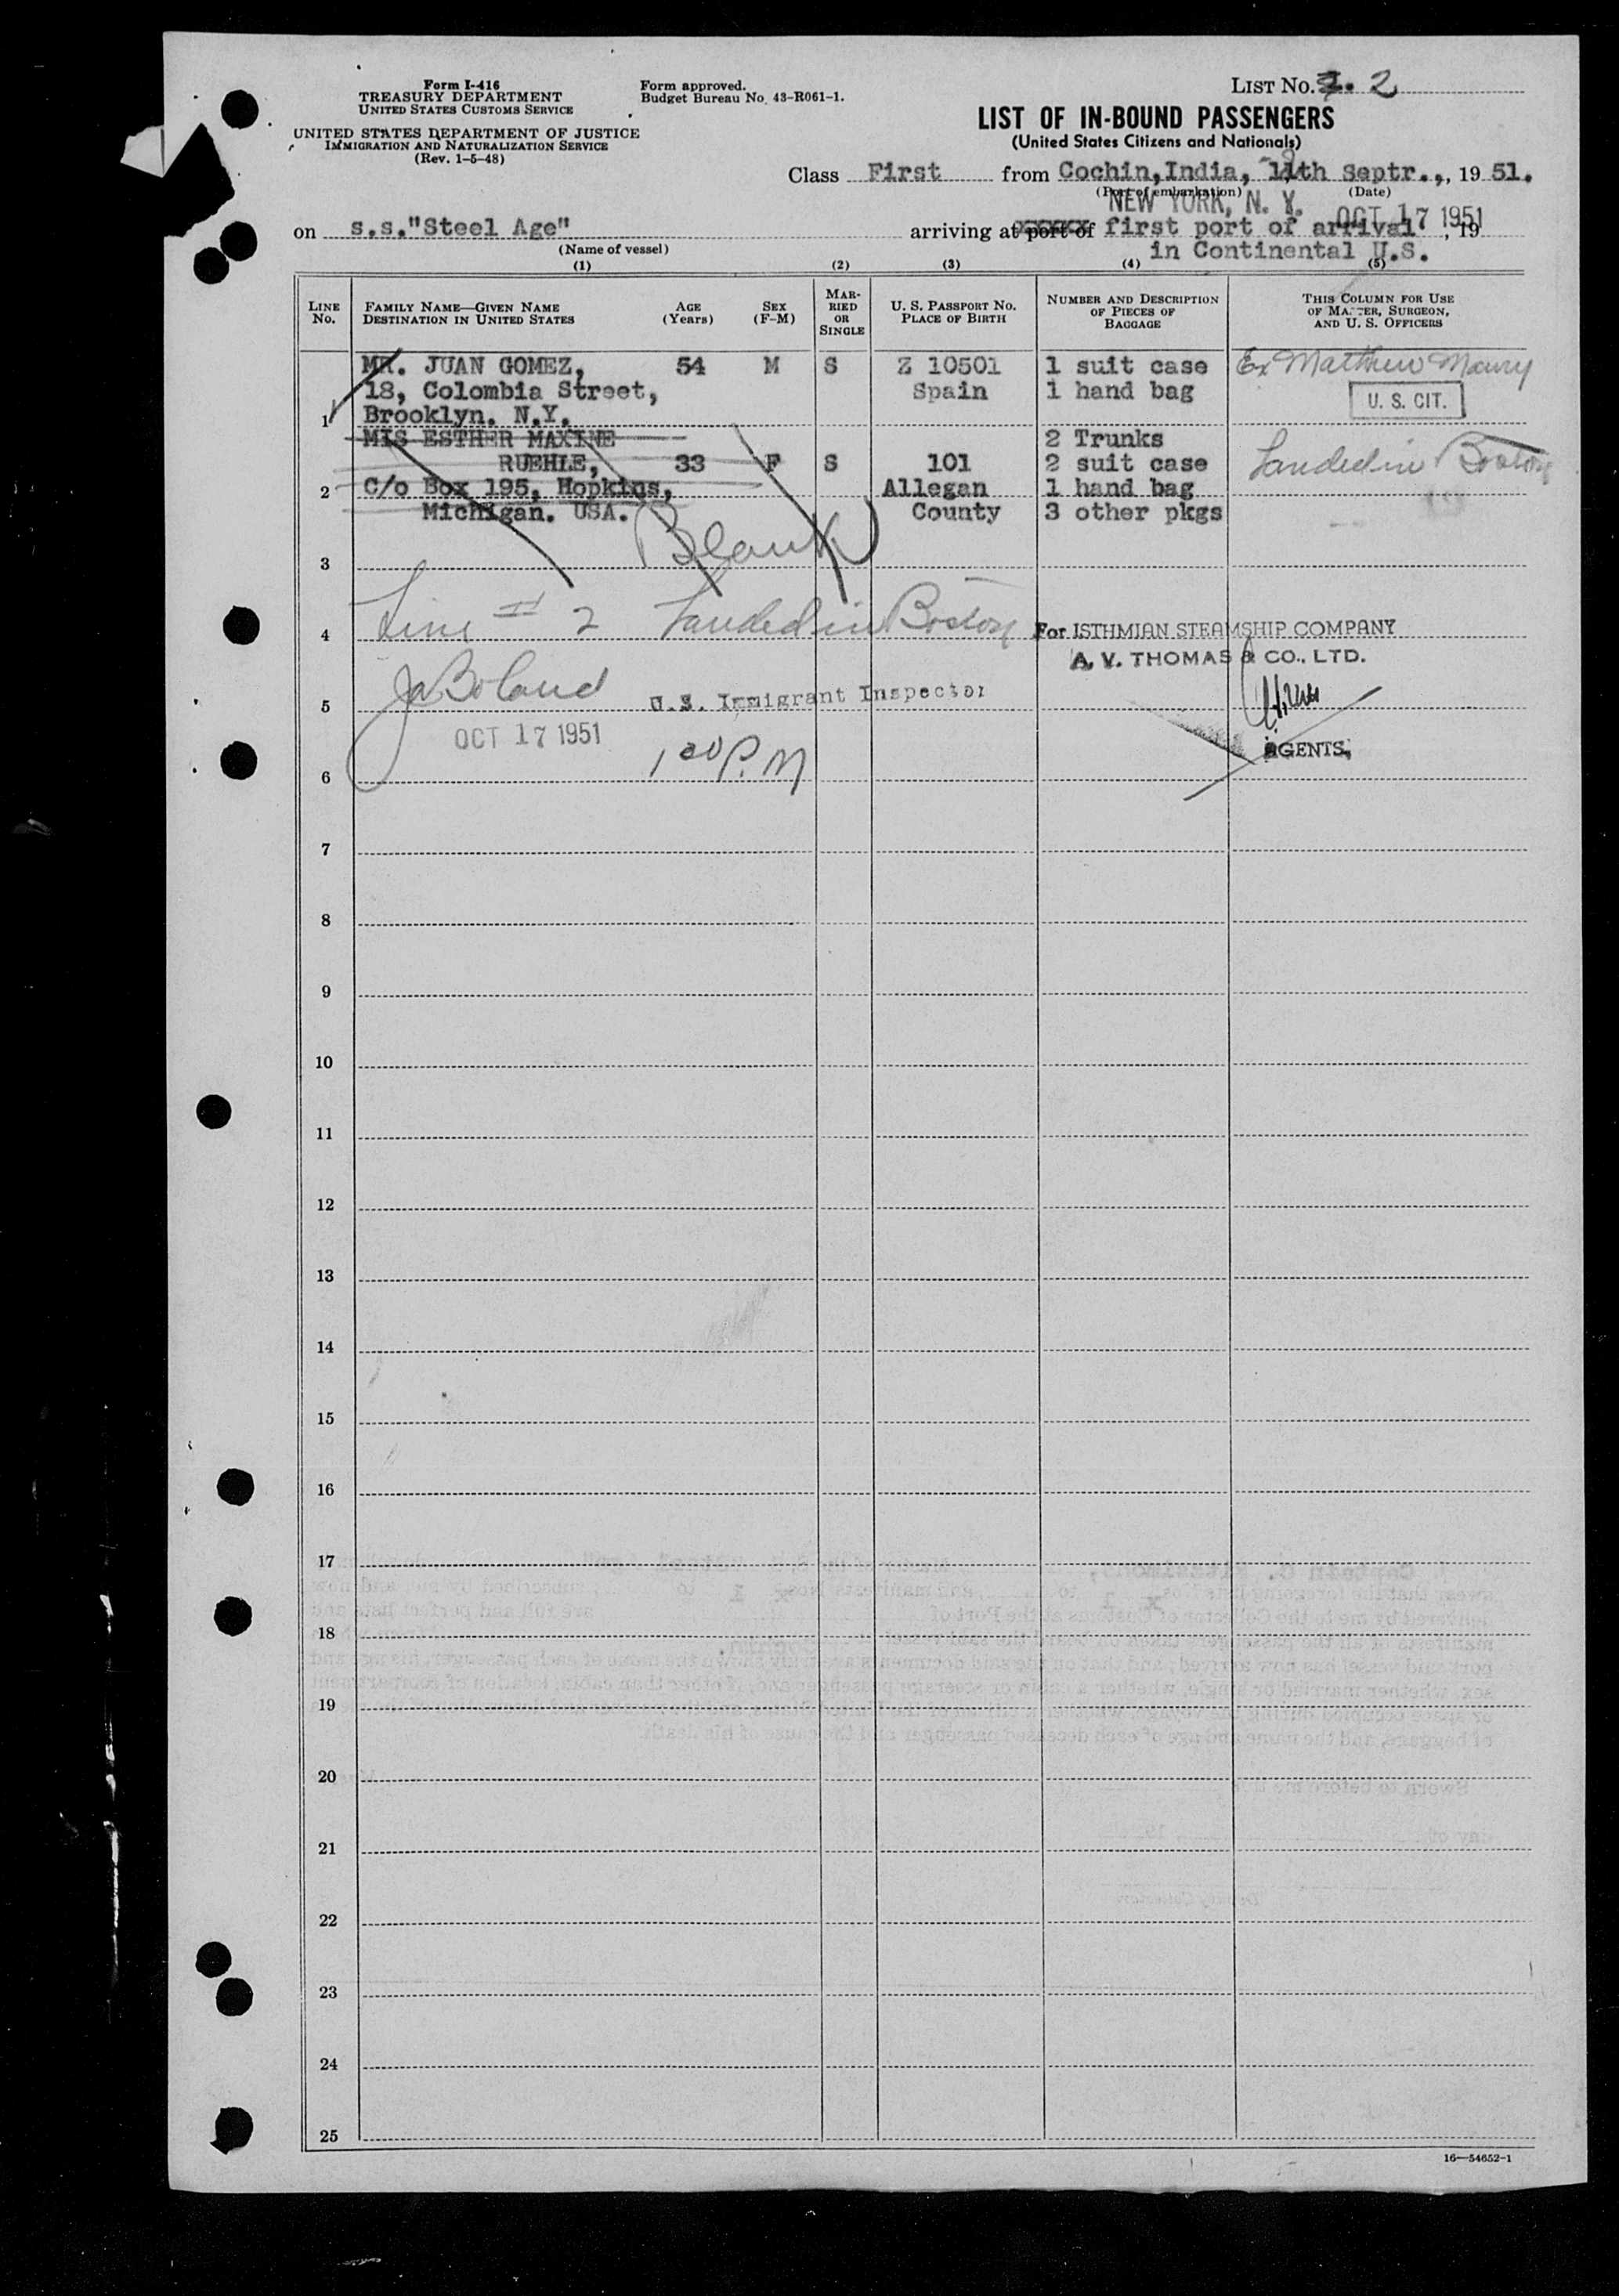 Form I-416
TREASURY DEPARTMENT
UNITED STATES CUSTOMS SERVICE
UNITED STATES DEPARTMENT OF JUSTICE
IMMIGRATION AND NATURALIZATION SERVICE
(Rev. 1-5-48)
Form approved.
Budget Bureau No. 43-R061-1.
LIST NO. 2
LIST OF IN-BOUND PASSENGERS
(United States Citizens and Nationals)
Class First from Cochin, India, th Septr., 1951.
(Port of embarkation) (Date)
NEW YORK, N. Y. OCT 17 1951
on s.s."Steel Age" arriving at port of first port of arrival, 19
(Name of vessel) in Continental U.S.
(1) (2) (3) (4) (5)
LINE No.
FAMILY NAME—GIVEN NAME
DESTINATION IN UNITED STATES
AGE
(Years)
SEX
(F-M)
MARRIED OR SINGLE
U. S. PASSPORT NO.
PLACE OF BIRTH
NUMBER AND DESCRIPTION OF PIECES OF BAGGAGE
THIS COLUMN FOR USE OF MASTER, SURGEON, AND U. S. OFFICERS
MR. JUAN GOMEZ, 54 M S Z 10501 1 suit case Ex Matthew Maury
18, Colombia Street, Spain 1 hand bag U. S. CIT.
1 Brooklyn. N.Y.
MIS ESTHER MAXINE 2 Trunks
RUEHLE, 33 F S 101 2 suit case Landed in Boston
2 C/o Box 195, Hopkins, Allegan 1 hand bag
Michigan. USA. County 3 other pkgs
Blank
3
4 Line # 2 Landed in Boston For ISTHMIAN STEAMSHIP COMPANY
A. V. THOMAS & CO., LTD.
5 Ja Boland U.S. Immigrant Inspector
OCT 17 1951 AGENTS,
6 1 00 P.M
7
8
9
10
11
12
13
14
15
16
17
18
19
20
21
22
23
24
25
16—54652-1